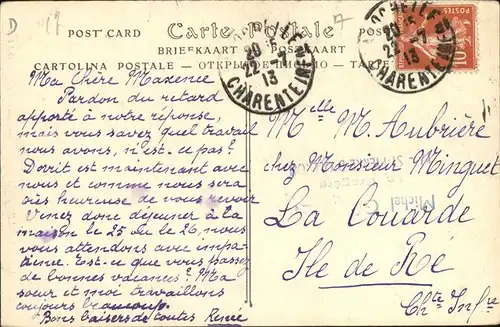 D
POST CARD
Carte Postale
BRIEFKAART
CARTOLINA POSTALE
LA ROCHELLE
20 15
22 - 7
13
CHARENTE INFRE
ROCHELLE
20 15
22 - 7
13
CHARENTE INFRE
10
Ma Chère Maxence
Pardon du retard
apporté à notre réponse,
mais vous savez quel travail
nous avons, n'est-ce pas?
Dorit est maintenant avec
nous et comme nous sera
très heureuse de vous revoir
Venez donc déjeuner à la
maison le 25 ou le 26, nous
vous attendons avec impa-
tience. Est-ce que vous passez
de bonnes vacances? Ma
soeur et moi travaillons
toujours beaucoup.
Bons baisers de toutes Renée
Mlle M. Aubrière
chez Monsieur Minguet
La Couarde
Ile de Ré
Chte Infre
Michel